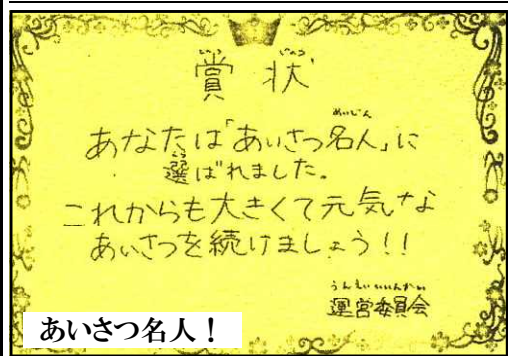 賞状
あなたは「あいさつ名人」に
選ばれました。
これからも大きくて元気な
あいさつを続けましょう!!
運営委員会
あいさつ名人！